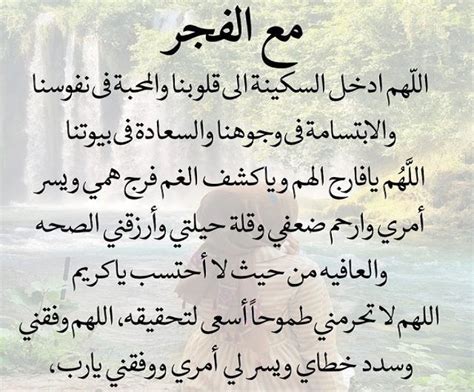 مع الفجر
اللّهم ادخل السكينة الى قلوبنا والمحبة فى نفوسنا
والابتسامة فى وجوهنا والسعادة فى بيوتنا
اللَّهُم يافارج الهم وياكشف الغم فرج همي ويسر
أمري وارحم ضعفي وقلة حيلتي وأرزقني الصحه
والعافيه من حيث لا أحتسب ياكريم
اللهم لا تحرمني طموحاً أسعى لتحقيقه، اللهم وفقني
وسدد خطاي ويسر لي أمري ووفقني يارب،